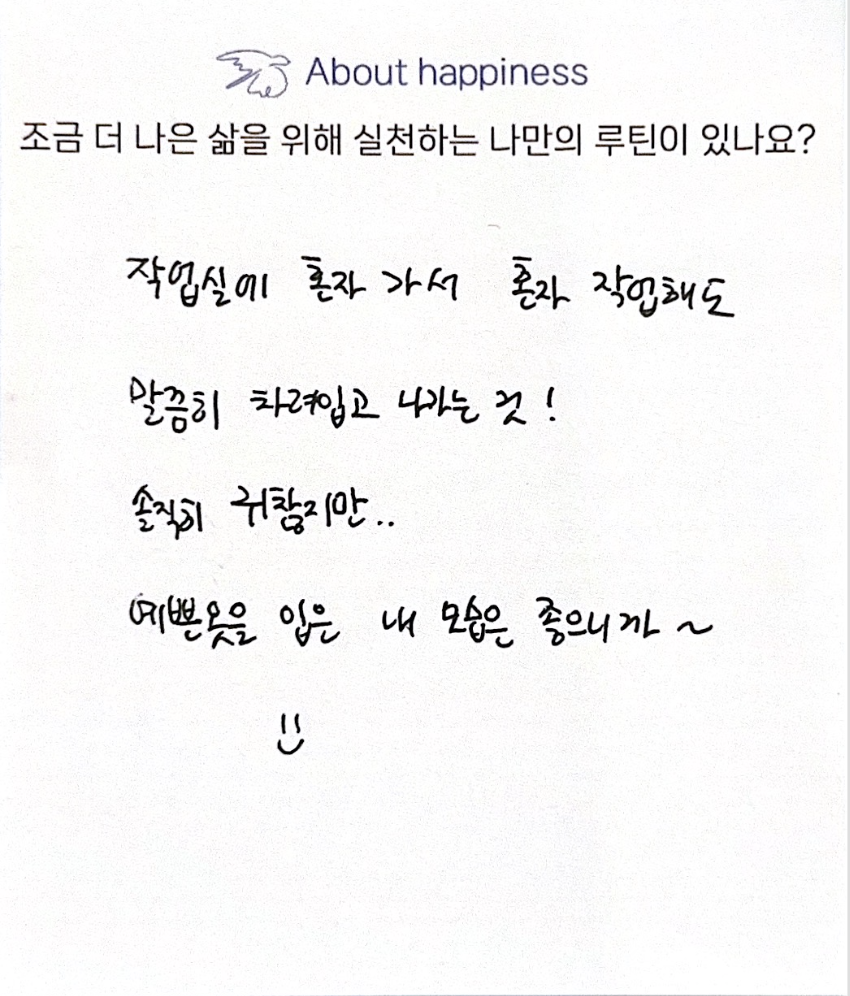 About happiness
조금 더 나은 삶을 위해 실천하는 나만의 루틴이 있나요?
작업실에 혼자 가서 혼자 작업해도
말끔히 차려입고 나가는 것!
솔직히 귀찮지만..
예쁜옷을 입은 내 모습은 좋으니까~